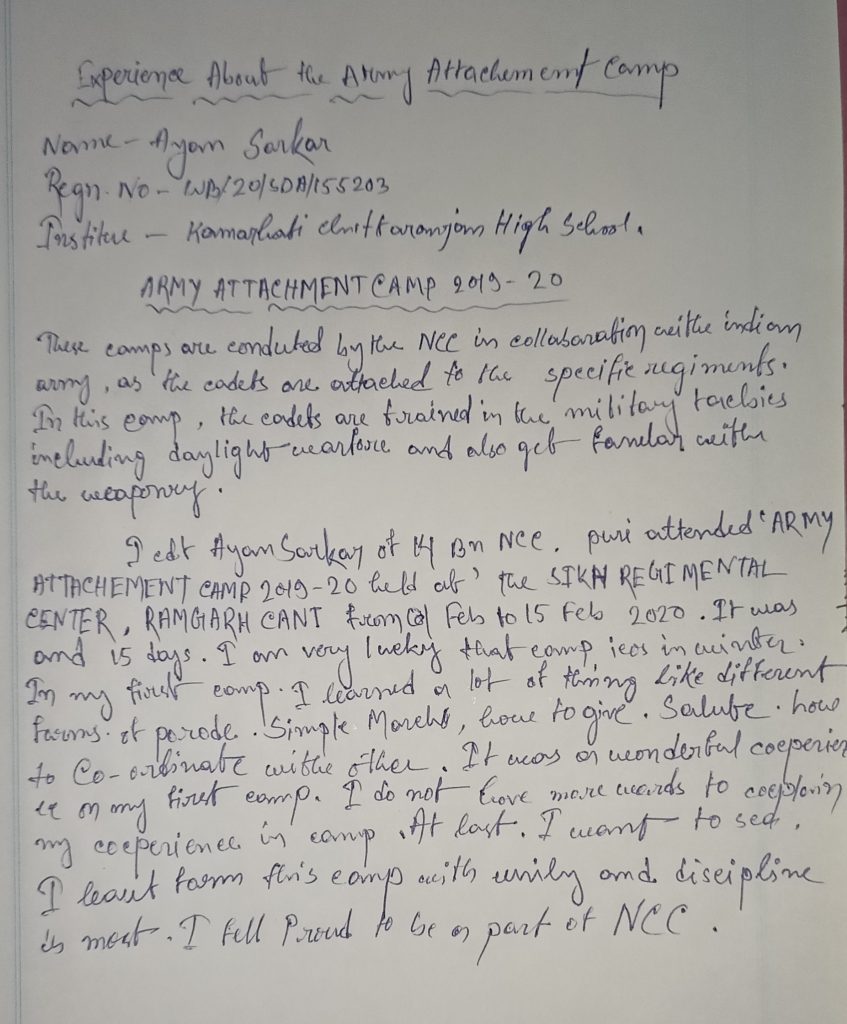 Experience About the Army Attachement Camp
Name - Ayan Sarkar
Regn. No - WB/20/SDA/155203
Institue - Kamarhati Chittaranjan High School.
ARMY ATTACHMENT CAMP 2019-20
These camps are conduted by the NCC in collaboration withe indian
army, as the cadets are attached to the specific regiments.
In this camp, the cadets are trained in the military
including daylight warfare and also get withe
the weaponry.
I cdt Ayan Sarkar of Bn NCC. attended 'ARMY
ATTACHEMENT CAMP 2019-20 held at' the SIKH REGIMENTAL
CENTER, RAMGARH CANT from Feb to 15 Feb 2020. It was
and 15 days. I am very lucky that camp in winter.
In my first camp. I learned a lot of thing like different
of parade. Simple March, how to give. Salute. how
to Co-ordinate withe other. It was a wonderful
on my first camp. I do not have more words to
my in camp. At last. I want to
I this camp with unity and discipline
is most. I fell Proud to be a part of NCC.